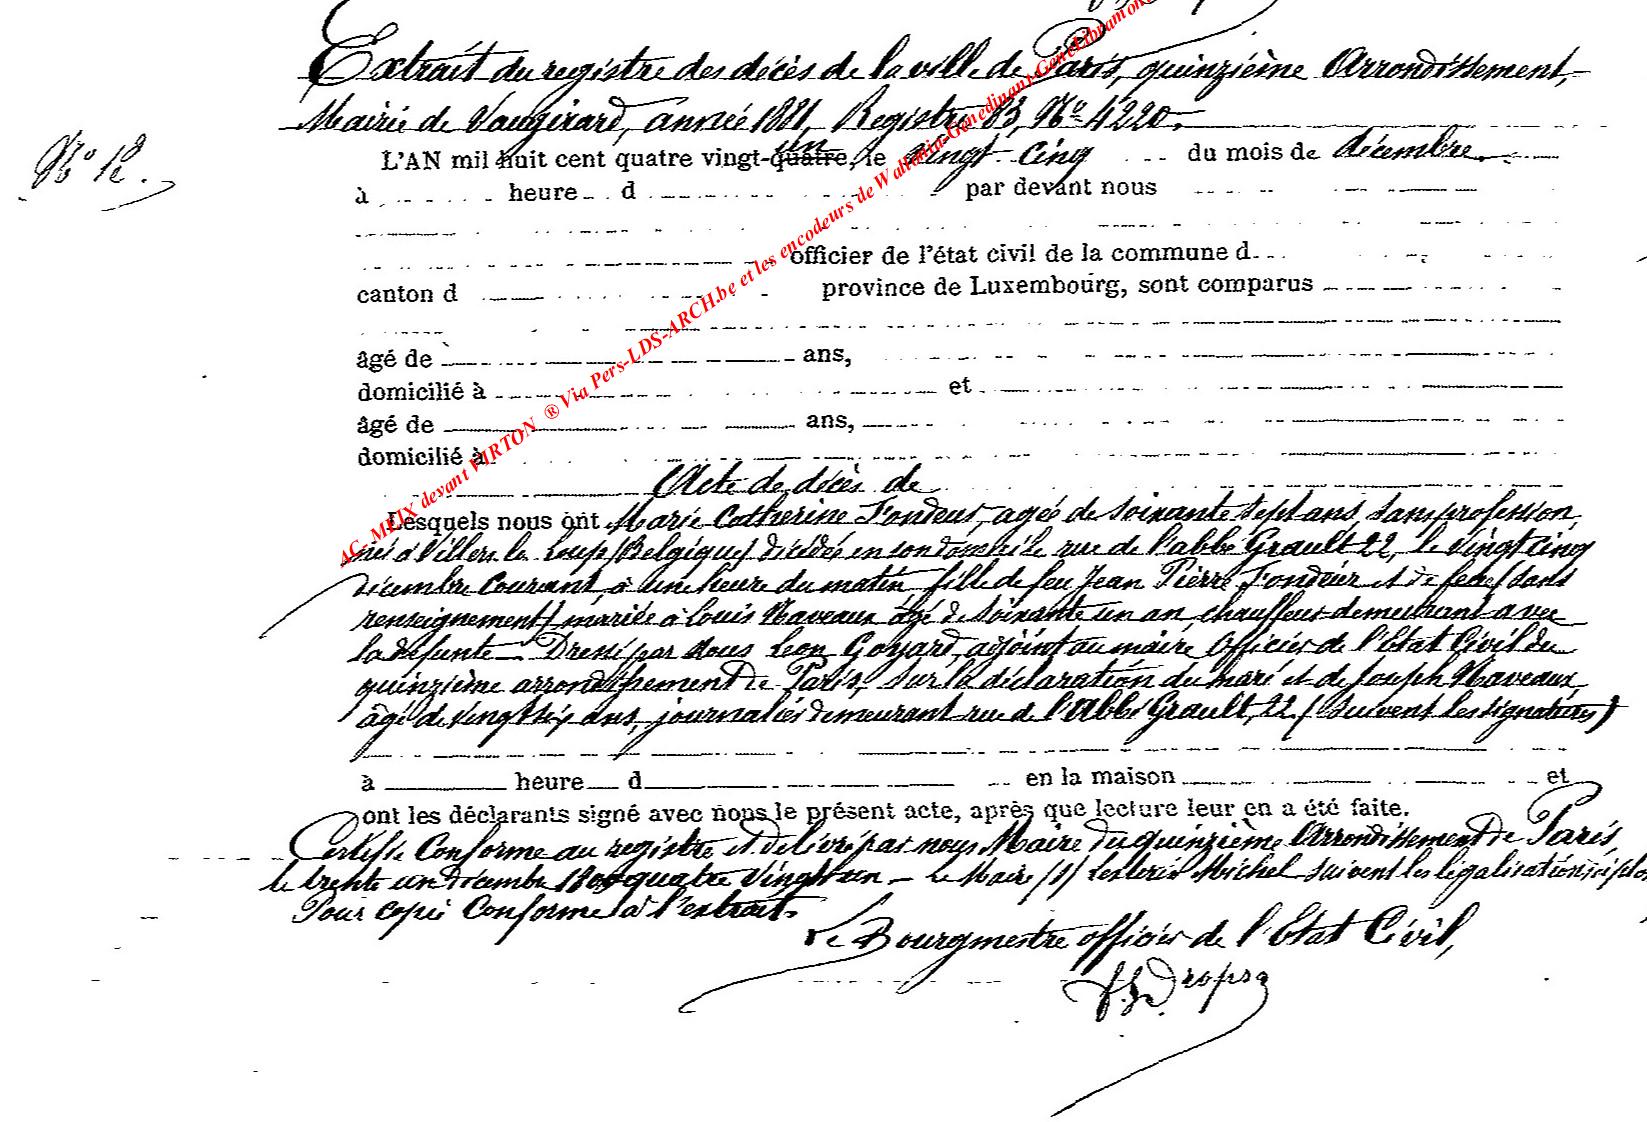 Extrait du registre des décès de la ville de Paris, quinzième Arrondissement,
Mairie de Vaugirard, année 1881, Registre 83, No 4220.
No 12.
L'AN mil huit cent quatre vingt-quatre, un le vingt-cinq du mois de décembre
à heure d par devant nous
officier de l'état civil de la commune d
canton d province de Luxembourg, sont comparus
âgé de ans,
domicilié à et
âgé de ans,
domicilié à
Acte de décès de
Lesquels nous ont Marie Catherine Fondeur, agée de soixante sept ans, sans profession,
née à Villers la Loup (Belgique) décédée en son domicile rue de l'abbé Grault 22, le vingt cinq
décembre courant à une heure du matin fille de feu Jean Pierre Fondeur et de feue (sans
renseignement) mariée à Louis Naveaux âgé de soixante un an, chauffeur demeurant avec
la défunte. Dressé par Nous Léon Goyard, adjoint au maire Officier de l'Etat Civil du
quinzième arrondissement de Paris, sur la déclaration du mari et de Joseph Naveaux,
âgé de vingt six ans, journalier demeurant rue de l'Abbé Grault, 22. (Suivent les signatures)
à heure d en la maison et
ont les déclarants signé avec nous le présent acte, après que lecture leur en a été faite.
Certifié Conforme au registre et délivré par nous Maire du quinzième Arrondissement de Paris,
le trente un décembre 1800 quatre vingt un - Le Maire (s) Michel suivent les légalisations
Pour copie Conforme à l'extrait.
Le Bourgmestre officier de l'Etat Civil,
Dropsy
AC. MEIX devant VIRTON ® Via Pers-LDS-ARCH.be et les encodeurs de Wallonia-Genedinant-GeneLibramont